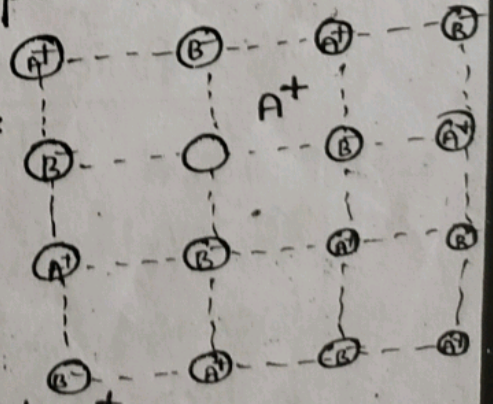 A+ B- A+ B-
A+
B- B A+
A+ B- A+ B-
B- A+ B- A+